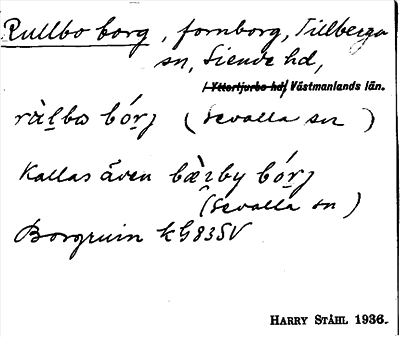 Rullbo borg, fornborg, Tillberga
sn, Siende hd,
/Yttertjurbo hd/ Västmanlands län.
ràl̠bo bór̠j (Sevalla sn)
Kallas även bæ̀r̠by bór̠j
(Sevalla sn)
Borgruin kG83SV
HARRY STÅHL 1936.